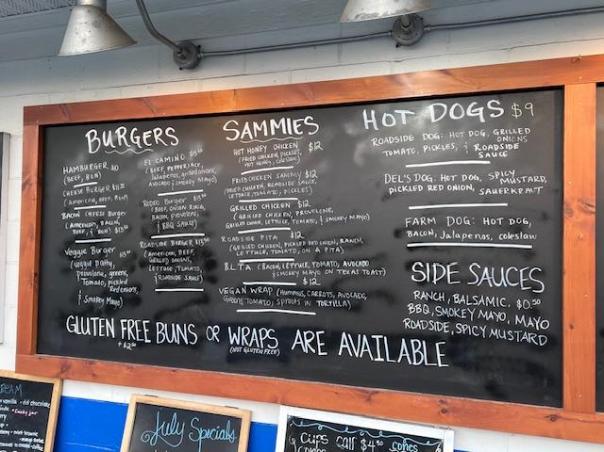 BURGERS
HAMBURGER
(BEEF, BUN)
CHEESE BURGER
(AMERICAN, BEEF, BUN)
BACON CHEESE BURGER
(AMERICAN, BACON,
BEEF, BUN)
Veggie Burger
(veggie patty,
provolone, greens,
Tomato, pickled
Red onion,
& Smokey Mayo)
EL CAMINO
(BEEF, PEPPER JACK,
Jalapenos,
AVOCADO & SMOKEY MAYO)
RODEO BURGER
(BEEF, ONION RINGS,
BACON, PROVOLONE,
& BBQ SAUCE)
ROADSIDE BURGER
(AMERICAN, BEEF,
GRILLED ONIONS,
LETTUCE, TOMATO,
ROADSIDE SAUCE)
SAMMIES
HOT HONEY CHICKEN $12
(FRIED CHICKEN, PICKLES,
HOT HONEY, COLESLAW)
FRIED CHICKEN SAMMY $12
(FRIED CHICKEN, ROADSIDE SAUCE,
LETTUCE, TOMATO, PICKLES)
GRILLED CHICKEN $12
(GRILLED CHICKEN, PROVOLONE,
GRILLED ONION, LETTUCE, TOMATO, & SMOKEY MAYO)
ROADSIDE PITA $12
(GRILLED CHICKEN, PICKLED RED ONION, RANCH,
LETTUCE, TOMATO, ON A PITA)
B.L.T.A. (BACON, LETTUCE, TOMATO, AVOCADO
& SMOKEY MAYO ON TEXAS TOAST)
$12
VEGAN WRAP (HUMMUS, CARROTS, AVOCADO,
ONION, TOMATO, SPROUTS IN TORTILLA)
HOT DOGS $9
ROADSIDE DOG: HOT DOG, GRILLED
ONIONS
TOMATO, PICKLES, & ROADSIDE
SAUCE
DEL'S DOG: HOT DOG, SPICY
MUSTARD,
PICKLED RED ONION, SAUERKRAUT
FARM DOG: HOT DOG,
BACON, Jalapenos, coleslaw
SIDE SAUCES
RANCH, BALSAMIC, $0.50
BBQ, SMOKEY MAYO, MAYO
ROADSIDE, SPICY MUSTARD
GLUTEN FREE BUNS OR WRAPS ARE AVAILABLE
(NOT GLUTEN FREE)
July Specials
cups
cones